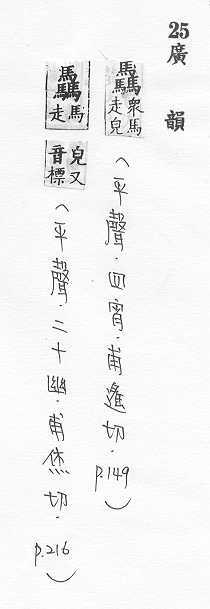 25 廣韻
驫衆馬走皃(平聲.四宵.甫遙切.p.149)
驫馬走皃又音標(平聲.二十幽.甫烋切.p.216)